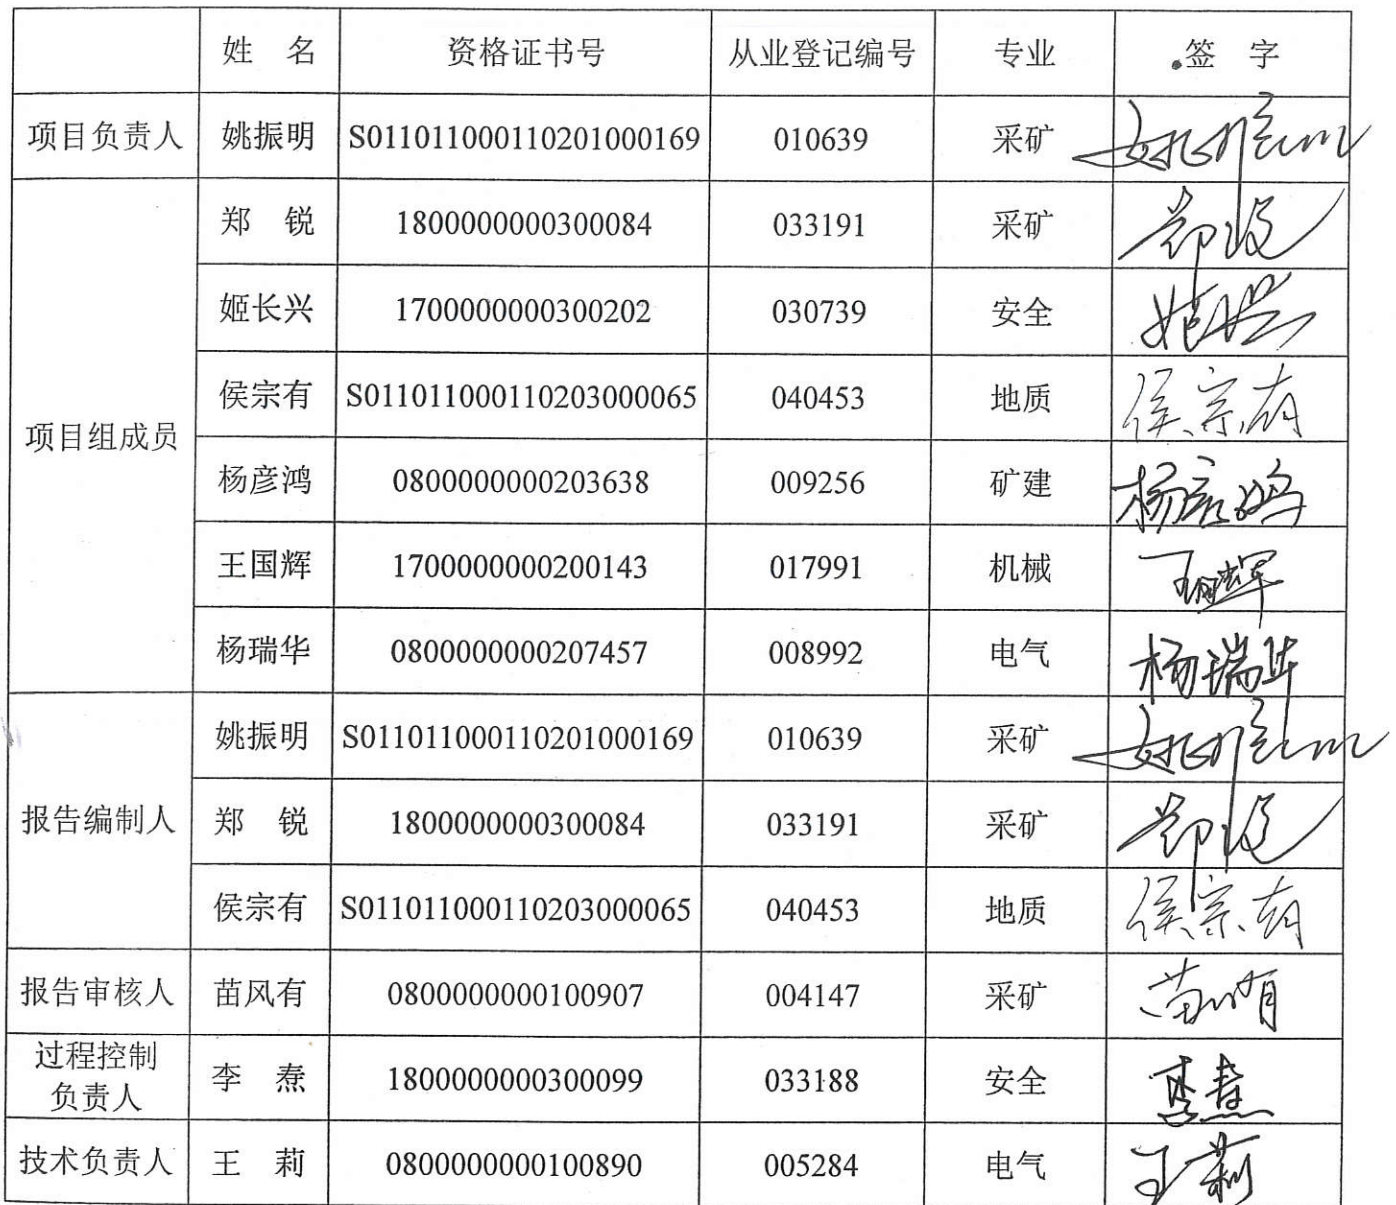 姓 名 资格证书号 从业登记编号 专业 签 字
项目负责人 姚振明 S011011000110201000169 010639 采矿 姚振明
项目组成员
郑 锐 1800000000300084 033191 采矿 郑锐
姬长兴 1700000000300202 030739 安全 姬长兴
侯宗有 S011011000110203000065 040453 地质 侯宗有
杨彦鸿 0800000000203638 009256 矿建 杨彦鸿
王国辉 1700000000200143 017991 机械 王国辉
杨瑞华 0800000000207457 008992 电气 杨瑞华
报告编制人
姚振明 S011011000110201000169 010639 采矿 姚振明
郑 锐 1800000000300084 033191 采矿 郑锐
侯宗有 S011011000110203000065 040453 地质 侯宗有
报告审核人 苗风有 0800000000100907 004147 采矿 苗风有
过程控制
负责人 李 焘 1800000000300099 033188 安全 李焘
技术负责人 王 莉 0800000000100890 005284 电气 王莉